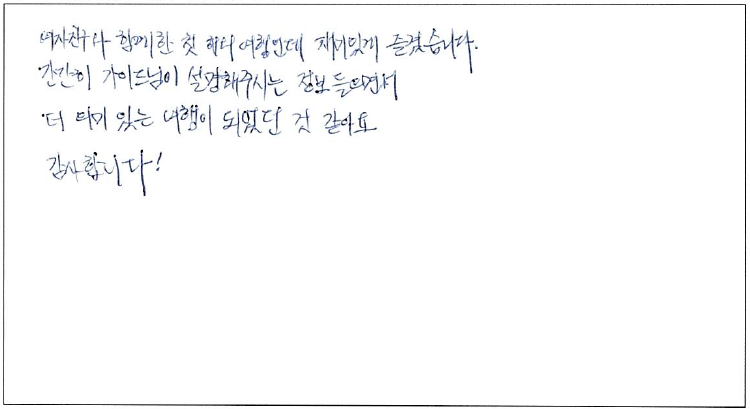 여자친구와 함께한 첫 해외 여행인데 재미있게 즐겼습니다.
간간히 가이드님이 설명해주시는 정보 들으면서
더 의미 있는 여행이 되었던 것 같아요
감사합니다!